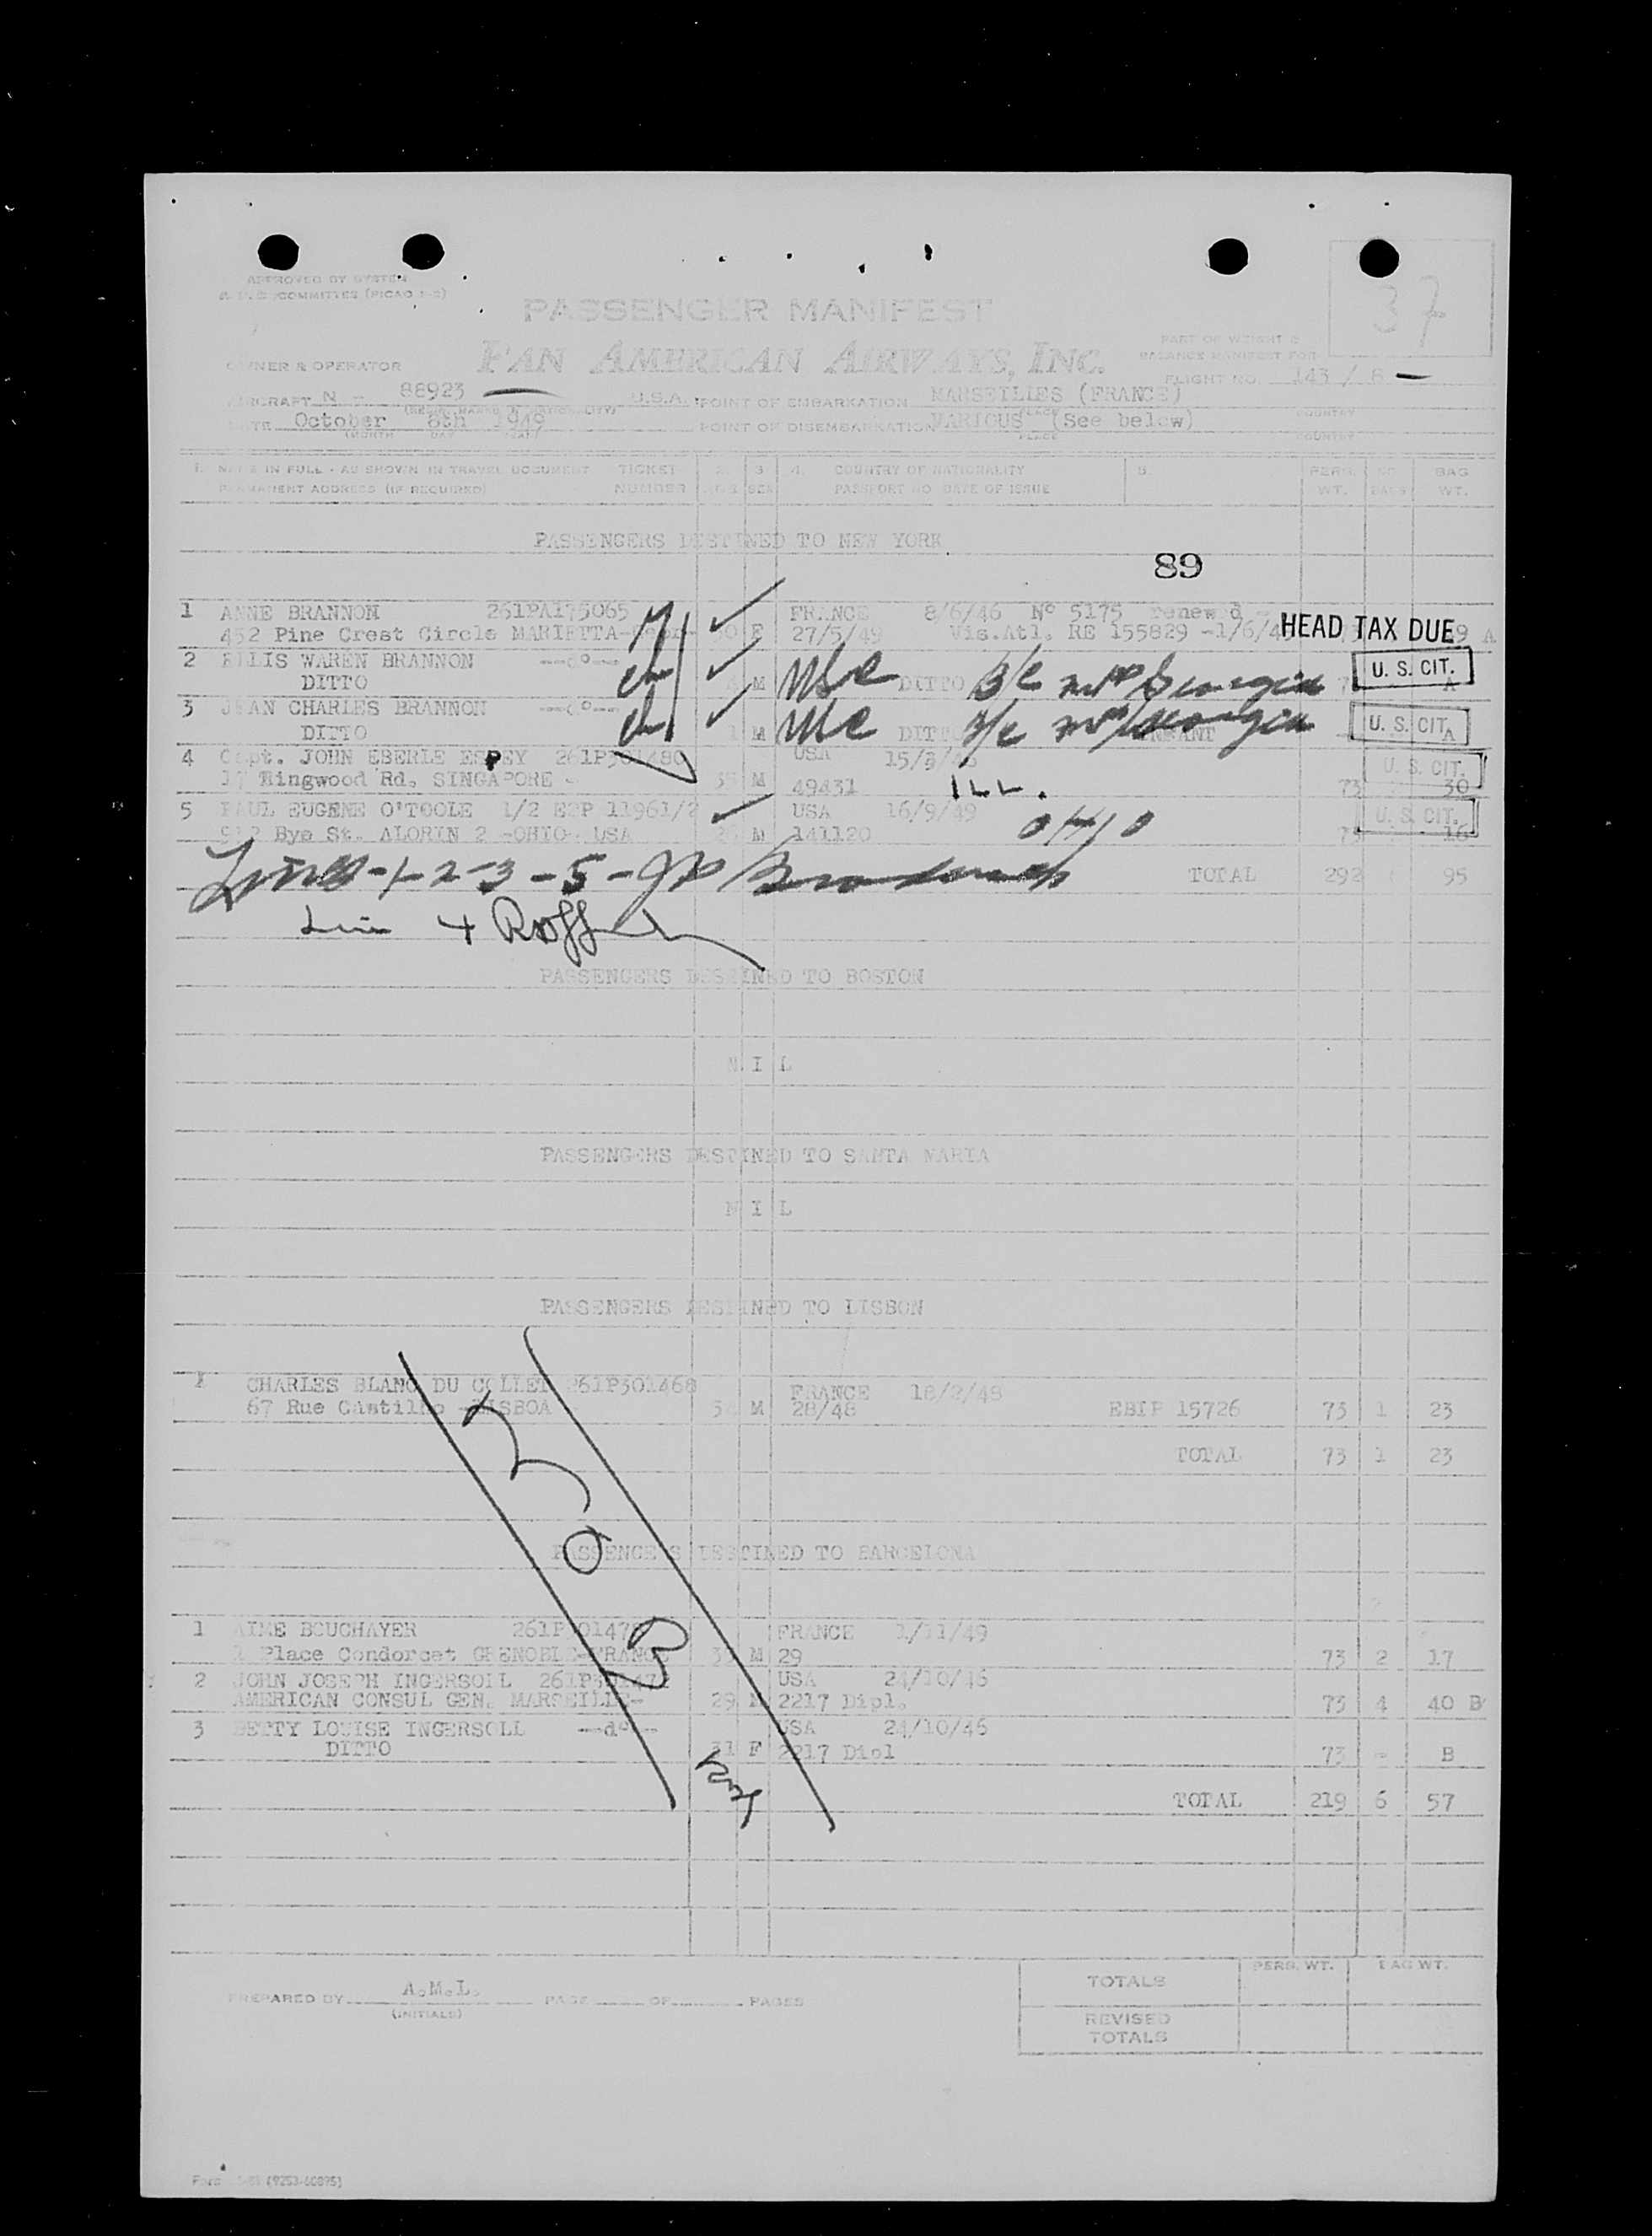 APPROVED BY SYSTEM
COMMITTEE (PICAO
37
PASSENGER MANIFEST
PART OF WEIGHT &
BALANCE MANIFEST FOR
OWNER & OPERATOR PAN AMERICAN AIRWAYS, INC.
FLIGHT NO. 143 / 8
AIRCRAFT N - 88923 U.S.A. POINT OF EMBARKATION MARSEILLES (FRANCE)
PLACE COUNTRY
DATE October 8th 1949 POINT OF DISEMBARKATION VARIOUS (See below)
(MONTH DAY YEAR) PLACE COUNTRY
1. NAME IN FULL - AS SHOWN IN TRAVEL DOCUMENT TICKET 2. 3. 4. COUNTRY OF NATIONALITY 5. PERS. NO. BAG
PERMANENT ADDRESS (IF REQUIRED) NUMBER AGE SEX PASSPORT NO. DATE OF ISSUE WT. WT.
PASSENGERS DESTINED TO NEW YORK
89
1 ANNE BRANNON 261PA175065 FRANCE 8/6/46 Nº 5175 renew'd
452 Pine Crest Circle MARIETTA F 27/5/49 Vis.Atl. RE 155829 -1/6/4 HEAD TAX DUE 9 A
2 ELLIS WAREN BRANNON --dº--
DITTO M USC DITTO B/C Georgia U. S. CIT. A
3 JEAN CHARLES BRANNON --dº--
DITTO 1 M USC DITTO B/C Georgia U. S. CIT. A
4 Capt. JOHN EBERLE ESPEY 261P301480 USA U. S. CIT.
17 Ringwood Rd. SINGAPORE - 35 M 49431 ILL. 73 30
5 PAUL EUGENE O'TOOLE 1/2 EBP 11961/2 USA 16/9/49 U. S. CIT.
Bye St. -OHIO- USA 26 M 141120 OHIO 73 16
Lines-1-2-3-5-
TOTAL 292 95
Line 4
PASSENGERS DESTINED TO BOSTON
N I L
PASSENGERS DESTINED TO SANTA MARIA
N I L
PASSENGERS DESTINED TO LISBON
1 CHARLES BLANC DU COLLET 261P301468 FRANCE 18/2/48
67 Rue Castilho -LISBOA M 28/48 EBIP 15726 73 1 23
TOTAL 73 1 23
PASSENGERS DESTINED TO BARCELONA
1 AIME BOUCHAYER FRANCE 1/11/49
Place Condorcet GRENOBLE-FRANCE M 29 73 2 17
2 JOHN JOSEPH INGERSOLL USA 24/10/46
AMERICAN CONSUL GEN. MARSEILLE- 29 M 2217 Dipl. 73 4 40 B
3 BETTY LOUISE INGERSOLL --dº-- USA 24/10/46
DITTO 31 F 2217 Dipl 73 - B
TOTAL 219 6 57
PREPARED BY A.M.L. PAGE OF PAGES
(INITIALS)
PERS. WT. BAG WT.
TOTALS
REVISED
TOTALS